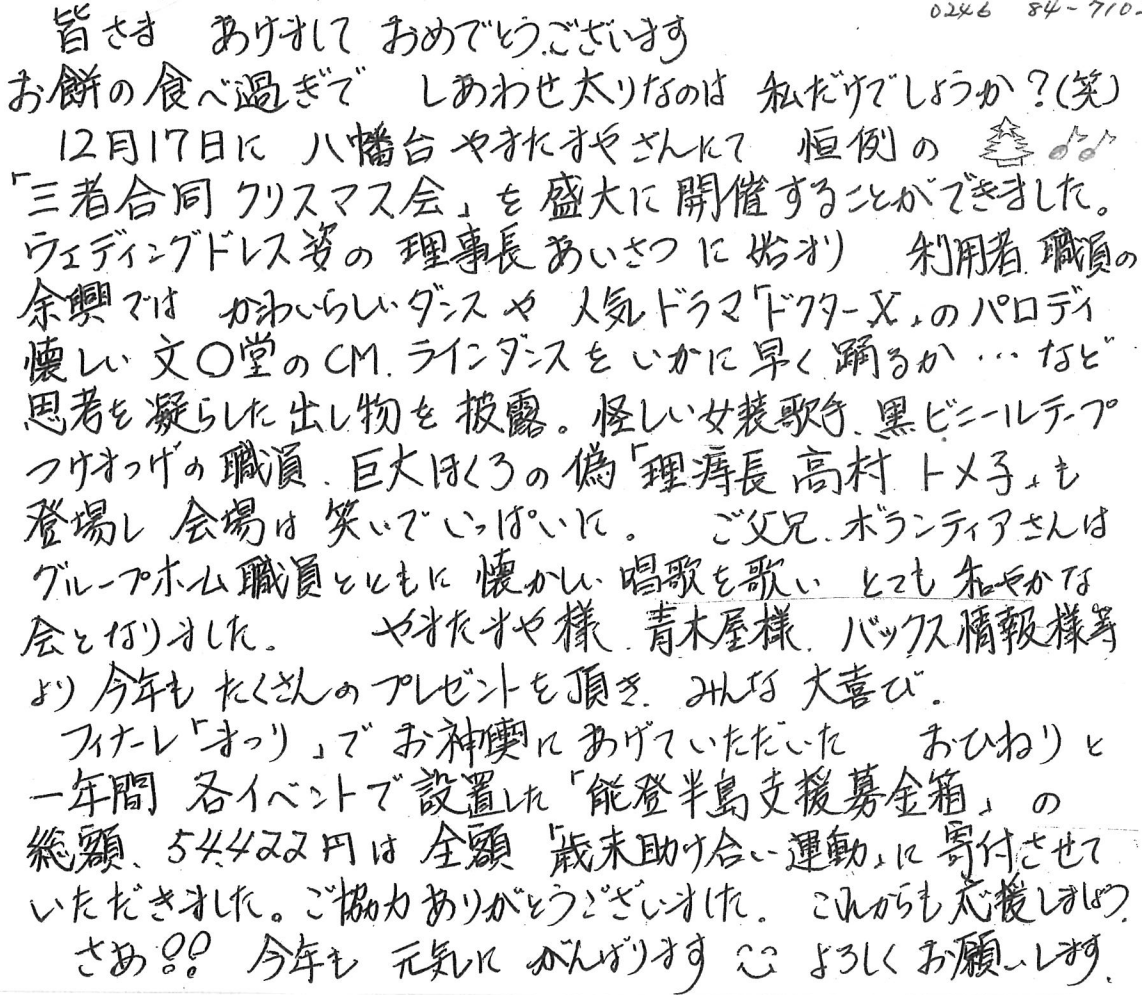 0246 84-710-
皆さま あけまして おめでとうございます
お餅の食べ過ぎで しあわせ太りなのは 私だけでしょうか?(笑)
12月17日に 八幡台 やまたまやさんにて 恒例の
「三者合同 クリスマス会」を 盛大に開催することができました。
ウェディングドレス姿の 理事長あいさつ に始まり 利用者、職員の
余興では かわいらしいダンスや 人気ドラマ「ドクターX」のパロディ
懐しい 文〇堂のCM、ラインダンスを いかに早く踊るか…など
思考を凝らした出し物を 披露。怪しい女装歌手、黒ビニールテープ
つけまつげの職員、巨大ほくろの偽「理痔長 高村 トメ子」も
登場し 会場は 笑いでいっぱいに。 ご父兄、ボランティアさんは
グループホーム職員とともに 懐かしい 唱歌を歌い とても 和やかな
会となりました。 やまたまや様、青木屋様、バックス情報様等
より 今年も たくさんのプレゼントを頂き、みんな 大喜び。
フィナーレ「まつり」で お神輿に あげていただいた おひねりと
一年間 各イベントで設置した「能登半島支援募金箱」の
総額、54,422円は 全額「歳末助け合い運動」に寄付させて
いただきました。ご協力ありがとうございました。これからも応援しましょう。
さあ!! 今年も 元気に がんばります よろしくお願いします。